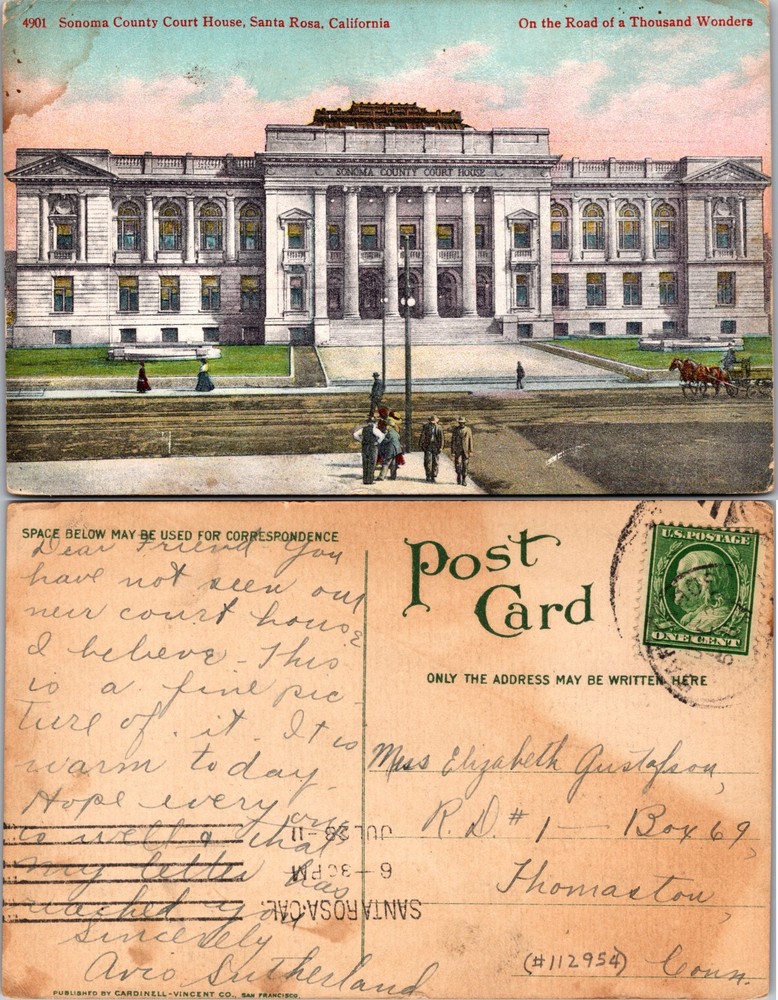 4901 Sonoma County Court House, Santa Rosa, California
On the Road of a Thousand Wonders
SONOMA COUNTY COURT HOUSE
SPACE BELOW MAY BE USED FOR CORRESPONDENCE
Dear Friend - You
have not seen our
new court house
I believe - This
is a fine pic-
ture of. it. It is
warm today -
Hope every one
is well & that
my letter has
reached you
Sincerely
Sutherland
PUBLISHED BY CARDINELL-VINCENT CO., SAN FRANCISCO.
Post
Card
U.S. POSTAGE
ONE CENT
ONLY THE ADDRESS MAY BE WRITTEN HERE
Miss Elizabeth Gustafson,
R.D. # 1 — Box 69,
Thomaston,
(#112954) Conn.
SANTA ROSA, CAL.
6-30 PM
JUL 28-11